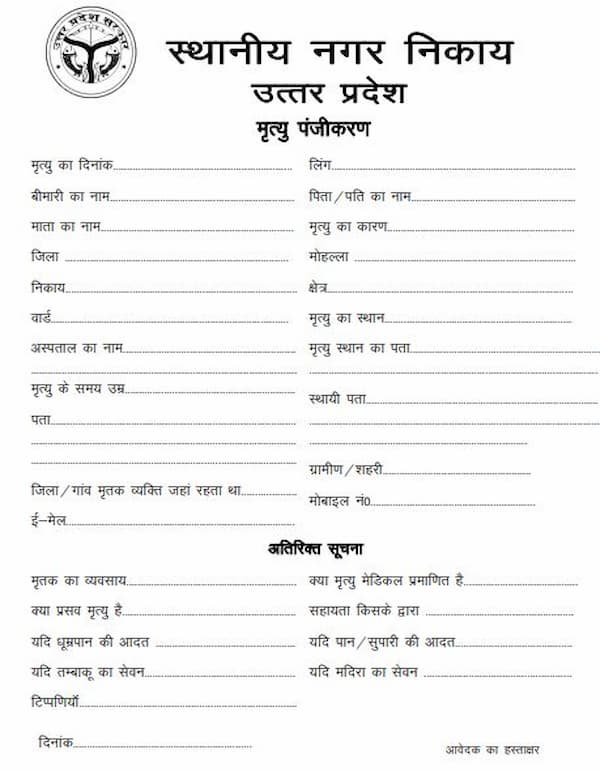 उत्तर प्रदेश सरकार
स्थानीय नगर निकाय
उत्तर प्रदेश
मृत्यु पंजीकरण
मृत्यु का दिनांक
लिंग
बीमारी का नाम
पिता/पति का नाम
माता का नाम
मृत्यु का कारण
जिला
मोहल्ला
निकाय
क्षेत्र
वार्ड
मृत्यु का स्थान
अस्पताल का नाम
मृत्यु स्थान का पता
मृत्यु के समय उम्र
स्थायी पता
पता
ग्रामीण/शहरी
जिला/गांव मृतक व्यक्ति जहां रहता था
मोबाइल नं०
ई-मेल
अतिरिक्त सूचना
मृतक का व्यवसाय
क्या मृत्यु मेडिकल प्रमाणित है
क्या प्रसव मृत्यु है
सहायता किसके द्वारा
यदि धूम्रपान की आदत
यदि पान/सुपारी की आदत
यदि तम्बाकू का सेवन
यदि मदिरा का सेवन
टिप्पणियॉं
दिनांक
आवेदक का हस्ताक्षर